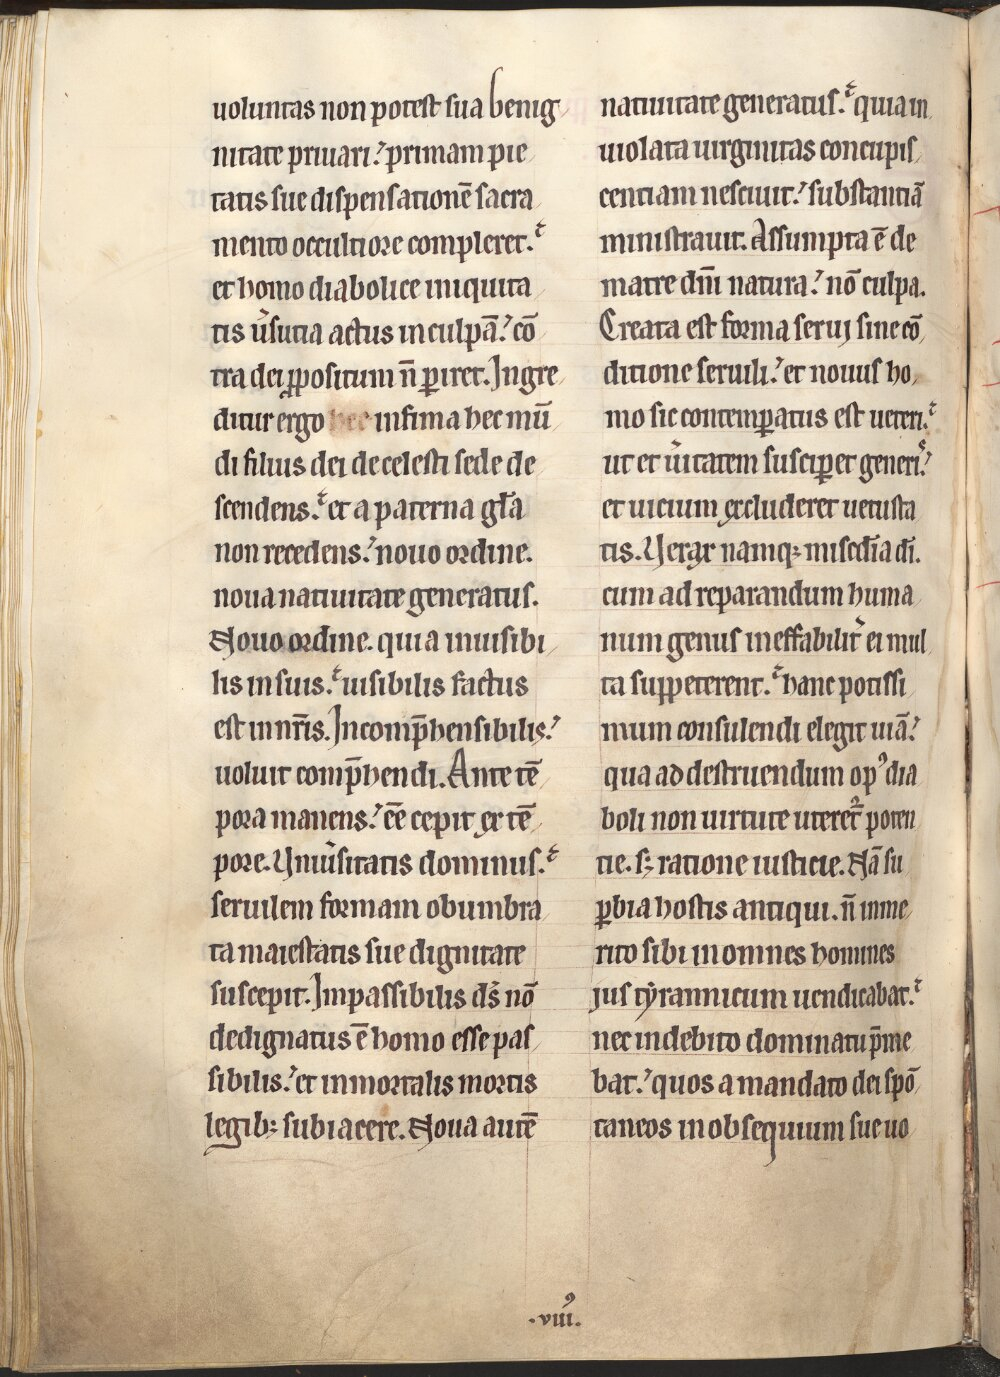 uoluntas non potest sua benig
nitate priuari. primam pie
tatis sue dispensationē sacra
mento occultiore compleret.
et homo diabolice iniquita
tis ûsutia actus in culpā. cō
tra dei ꝓpositum n̄ ꝑiret. Ingre
ditur ergo hec infima hec mū
di filius dei de celesti sede de
scendens. et a paterna gl̄a
non recedens. nouo ordine.
noua natiuitate generatus.
Nouo ordine. quia inuisibi
lis in suis. uisibilis factus
est in nr̄is. Incomp̄hensibilis.
uoluit comp̄hendi. Ante tē
pora manens. eē cepit ex tē
pore. Uniu̓sitatis dominus.
seruilem formam obumbra
ta maiestatis sue dignitate
suscepit. Impassibilis ds̄ nō
dedignatus ē homo esse pas
sibilis. et inmortalis mortis
legibꝫ subiacere. Noua autē
natiuitate generatus. quia in
uiolata uirginitas concupis
centiam nesciuit. substantiā
ministrauit. Assumpta ē de
matre dn̄i natura. nō culpa.
Creata est forma serui sine cō
ditione seruili. et nouus ho
mo sic contemꝑatus est ueteri.
ut et u̓itatem susciꝑet generis.
et uicium excluderet uetusta
tis. Uerax namqꝫ misc̄dia dī.
cum ad reparandum huma
num genus ineffabilit̓ ei mul
ta suppeterent. hanc potissi
mum consulendi elegit uiā.
qua ad destruendum opꝰ dia
boli non uirtute uteret᷑ poten
tie. sꝫ ratione iusticie. Nā su
ꝑbia hostis antiqui. n̄ inme
rito sibi in omnes homines
jus tyrannicum uendicabat.
nec indebito dominatu p̄me
bat. quos a mandato dei spō
taneos in obsequium sue uo
.viiiꝰ.